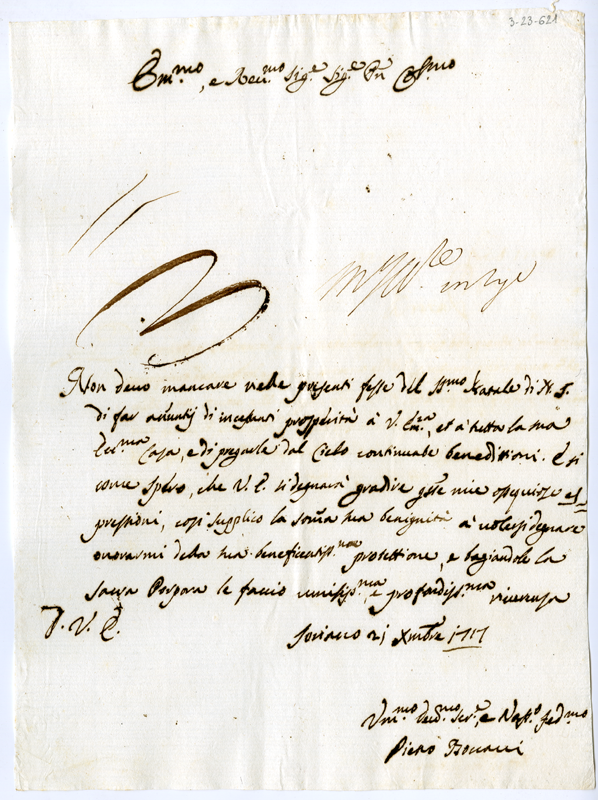 3-23-621
Em.mo, e Reu.mo Sig.e Sig.e Pn
Non deuo mancare nelle presenti feste del SS.mo Natale di N. S.
di far annuntij di incessanti prosperità à V. Em.a, et à tutta la sua
Ecc.ma Casa, e di pregarle dal Cielo continuate benedittioni. E si
come spero, che V. E. si degnarà gradire q.ste mie ossequiose es-
pressioni, così supplico la somma sua benignità à uolersi degnare
onorarmi della sua beneficentiss.ma protettione, e bagiandole la
Sacra Porpora le faccio umiliss.ma, e profondiss.ma riuerenza
D. V. E.
Soriano 21 Xmbre 1717
Vm.mo Deu.mo Ser.e, e Vass.o fed.mo
Piero